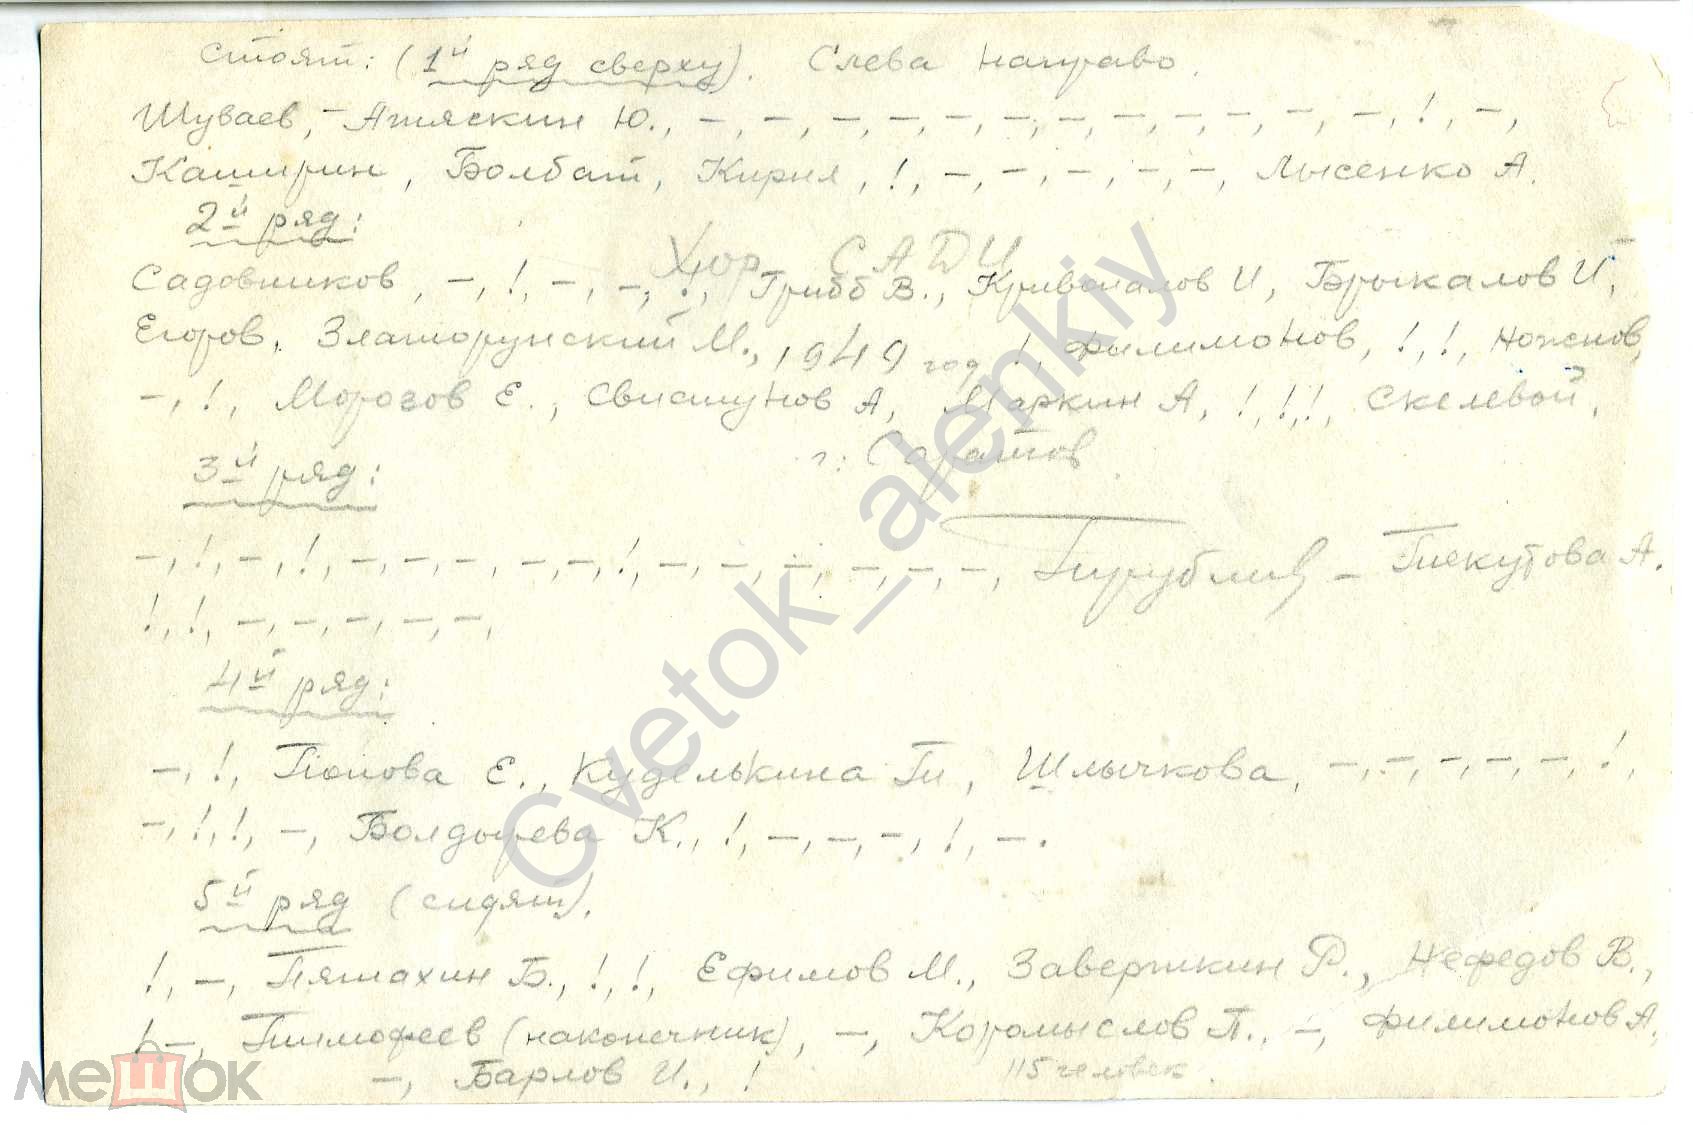 Стоят: (1й ряд сверху). Слева направо.
Шуваев, – Атяскин Ю., –, –, –, –, –, –, –, –, –, –, –, –, !, –,
Каширин, Болбат, Кирня, !, –, –, –, –, –, Лысенко А.
2й ряд:
Хор САДИ
Садовников, –, !, –, –, !, Грибб В., Кривопалов И, Брыкалов И,
Егоров, Златорунский М., !, Филимонов, !, !, Ножнов,
1949 год
–, !, Морозов Е., Свистунов А, Маркин А, !, !, !, Скелевой,
г. Саратов
3й ряд:
–, !, –, !, –, –, –, –, –, !, –, –, –, –, –, –, –, – Текутова А.
!, !, –, –, –, –, –,
4й ряд:
–, !, Попова Е., Куделькина Т, Шлычкова, –, –, –, –, –, !,
–, !, !, –, Болдырева К., !, –, –, –, !, –.
5й ряд (сидят).
!, –, Пятахин Б., !, !, Ефимов М., Заверткин Р., Нефедов В.,
! –, Тимофеев (наконечник), –, Коромыслов П., –, Филимонов А.,
–, Барлов И., !
115 человек.
Cvetok_alenkiy
мешок